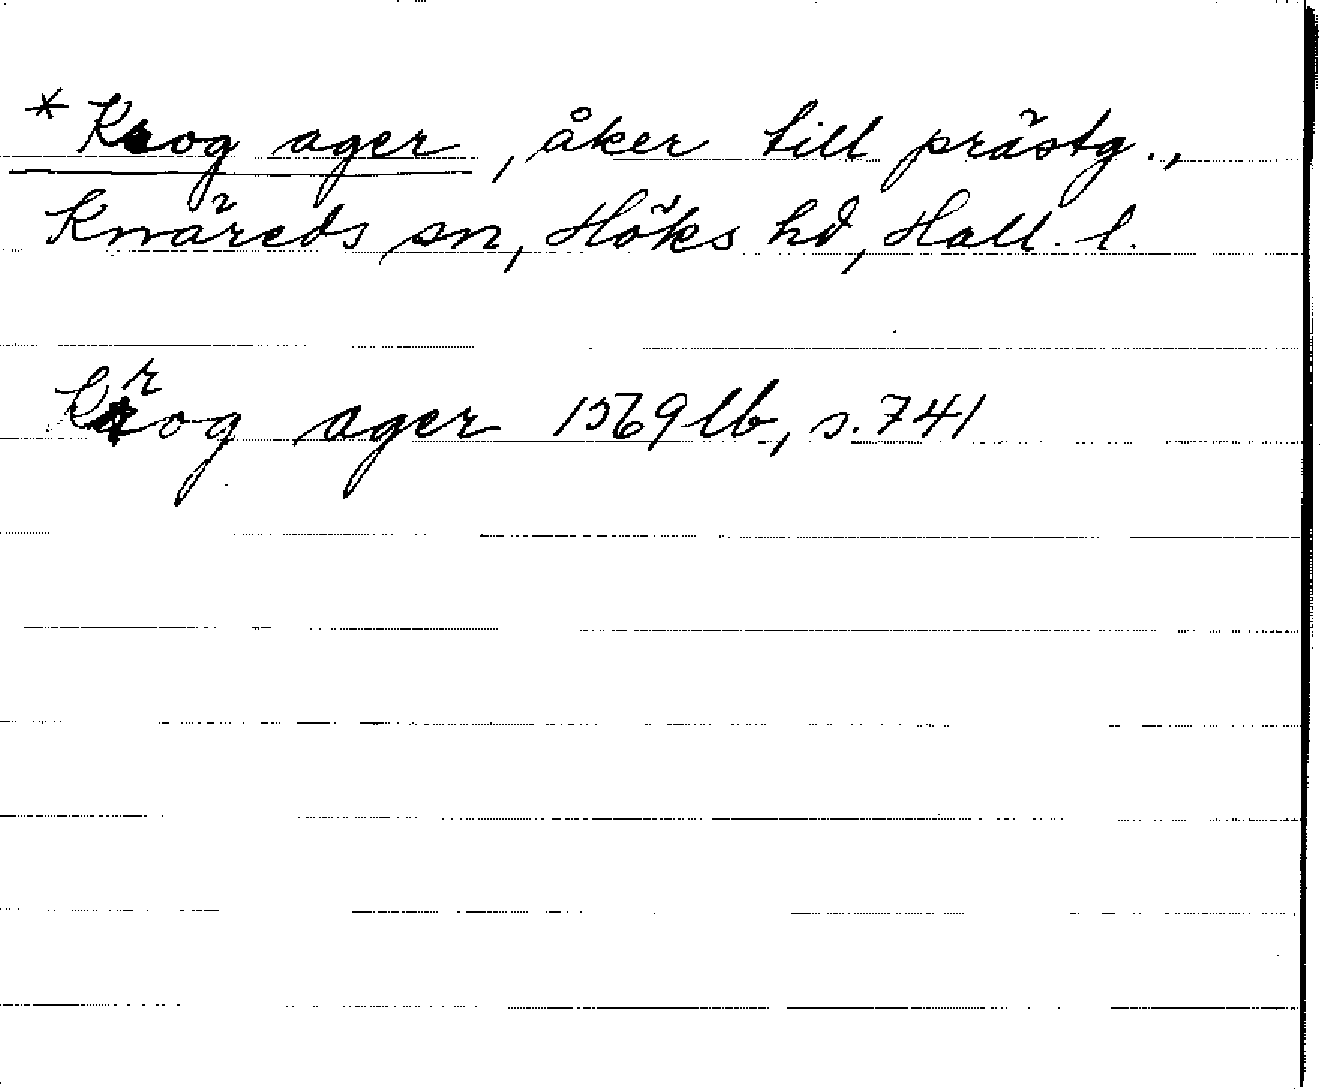 *Krog ager, åker till prästg.,
Knäreds sn, Höks hd, Hall. l.
Krog ager 1569 lb, s. 741